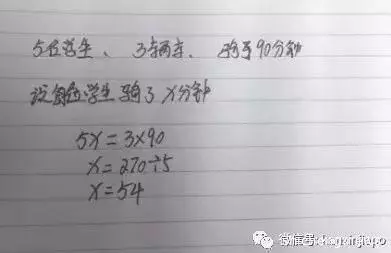 5位学生、3辆车、骑了90分钟
设每位学生骑了X分钟
5X=3×90
X=270÷5
X=54